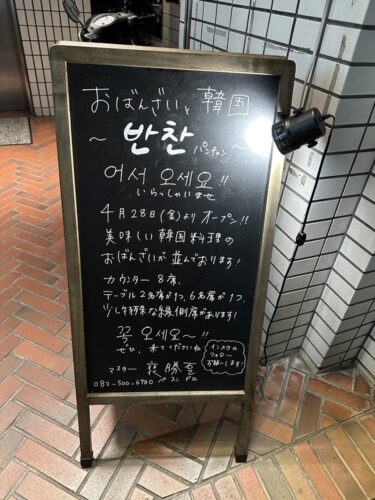 おばんざいと韓国
～ 반찬 パンチャン ～
어서 오세요!!
いらっしゃいませ
4月28日(金)よりオープン!!
美味しい韓国料理の
おばんざいが並んでおります!
カウンター 8席、
テーブル2名席が1つ、6名席が1つ、
少し特殊な縁側席があります!
꼬옥 오세요~!!
ぜひ、来てくださいね
インスタの
フォロー
お願いします!
マスター 裵 勝乭
082-500-6780 ペ スン ドル